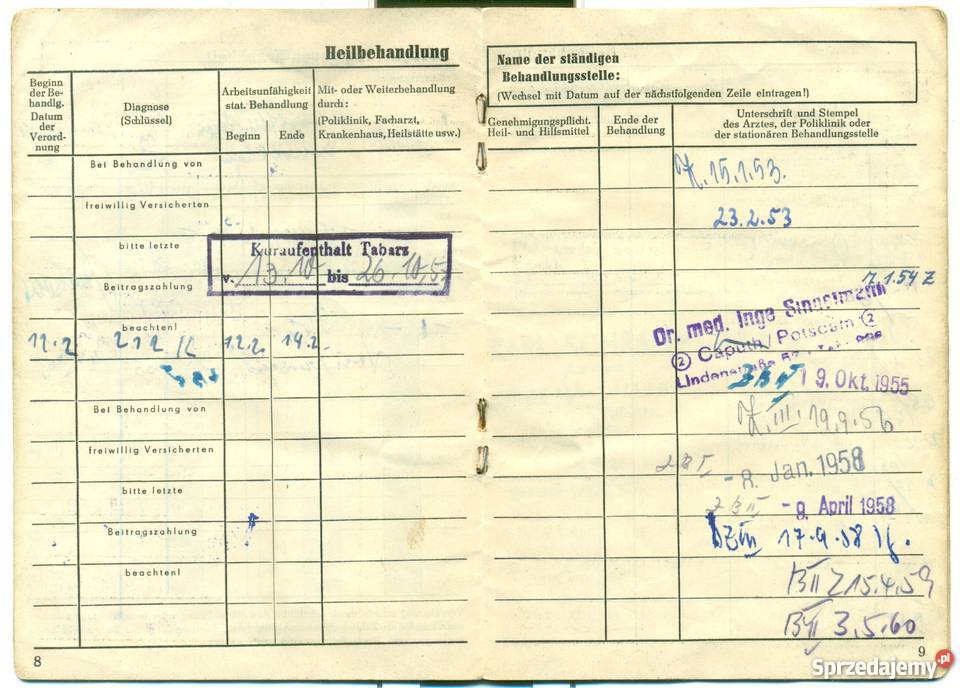 Heilbehandlung
Beginn der Be-handlg. Datum der Verord-nung
Diagnose (Schlüssel)
Arbeitsunfähigkeit stat. Behandlung
Beginn
Ende
Mit- oder Weiterbehandlung durch:
(Poliklinik, Facharzt, Krankenhaus, Heilstätte usw.)
Bei Behandlung von
freiwillig Versicherten
bitte letzte
Beitragszahlung
beachten!
Kuraufenthalt Tabarz
v. 13.10 bis 26.10.5
12.2 212 12.2. 14.2.
Bei Behandlung von
freiwillig Versicherten
bitte letzte
Beitragszahlung
beachten!
8
Name der ständigen
Behandlungsstelle:
(Wechsel mit Datum auf der nächstfolgenden Zeile eintragen!)
Genehmigungspflicht. Heil- und Hilfsmittel
Ende der Behandlung
Unterschrift und Stempel des Arztes, der Poliklinik oder der stationären Behandlungsstelle
Z. 15.1.53.
23.2.53
7.1.54 Z
Dr. med. Inge
② Caputh / Potsdam ②
Lindenstraße
19. Okt. 1955
Z. III. 19.9.56
- 8. Jan. 1958
- 9. April 1958
17.9.58
BII Z 15.4.59
3.5.60
9
Sprzedajemy.pl